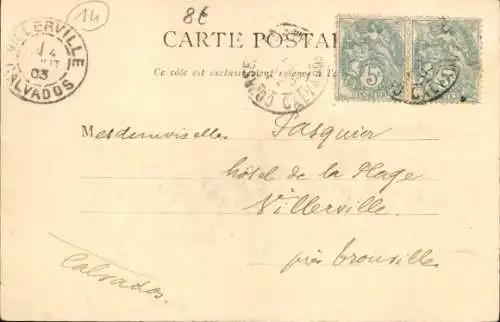 14
86
CARTE POSTALE
Ce côté est exclusivement réservé à l'a
VILLERVILLE
4
03
CALVADOS
CORSE
5
Mesdemoiselles Pasquier
hôtel de la Plage
Villerville
près Trouville
Calvados.